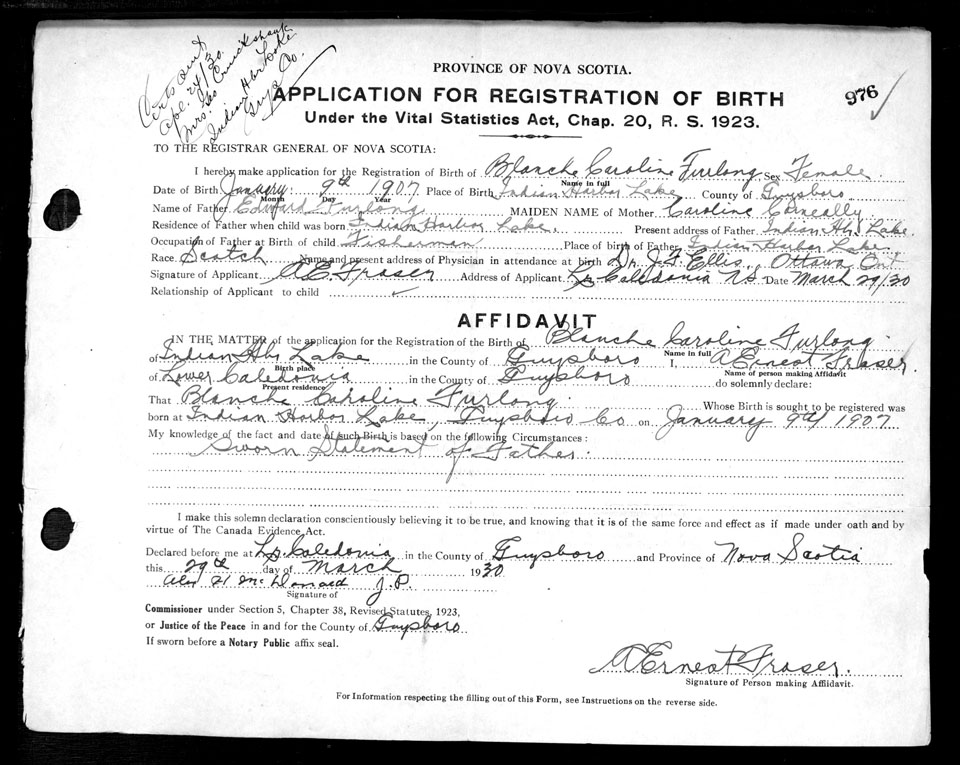 Certs sent
Apl. 24/30.
Mrs. Geo Cruickshank
Indian Hbr Lake
Guys Co.
976
PROVINCE OF NOVA SCOTIA.
APPLICATION FOR REGISTRATION OF BIRTH
Under the Vital Statistics Act, Chap. 20, R. S. 1923.
TO THE REGISTRAR GENERAL OF NOVA SCOTIA:
I hereby make application for the Registration of Birth of Blanche Caroline Furlong. Sex Female.
Name in full
Date of Birth January 9th 1907 Place of Birth Indian Harbor Lake County of Guysboro
Month Day Year
Name of Father Edward Furlong MAIDEN NAME of Mother Caroline
Residence of Father when child was born Indian Harbor Lake. Present address of Father Indian Hbr Lake.
Occupation of Father at Birth of child Fisherman Place of birth of Father Indian Harbor Lake
Race Scotch Name and present address of Physician in attendance at birth Dr. J. F. Ellis, Ottawa Ont
Signature of Applicant A E. Fraser Address of Applicant Lr. Caledonia NS Date March 29/30
Relationship of Applicant to child
AFFIDAVIT
IN THE MATTER of the application for the Registration of the Birth of Blanche Caroline Furlong
Name in full
of Indian Hbr Lake in the County of Guysboro I, A Ernest Fraser
Birth place Name of person making Affidavit
of Lower Caledonia in the County of Guysboro do solemnly declare:
Present residence
That Blanche Caroline Furlong Whose Birth is sought to be registered was
born at Indian Harbor Lake, Guysboro Co on January 9th 1907
My knowledge of the fact and date of such Birth is based on the following Circumstances:
Sworn Statement of Father.
I make this solemn declaration conscientiously believing it to be true, and knowing that it is of the same force and effect as if made under oath and by
virtue of The Canada Evidence Act.
Declared before me at Lr. Caledonia in the County of Guysboro and Province of Nova Scotia
this 29th day of March 1930
Alex H McDonald J.P.
Signature of
Commissioner under Section 5, Chapter 38, Revised Statutes, 1923,
or Justice of the Peace in and for the County of Guysboro
If sworn before a Notary Public affix seal.
A Ernest Fraser.
Signature of Person making Affidavit.
For Information respecting the filling out of this Form, see Instructions on the reverse side.